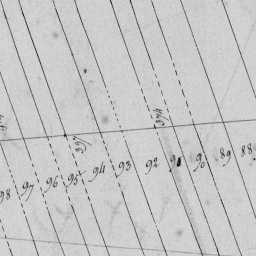 374
397
98 97 96 95 94 93 92 91 90 89 88